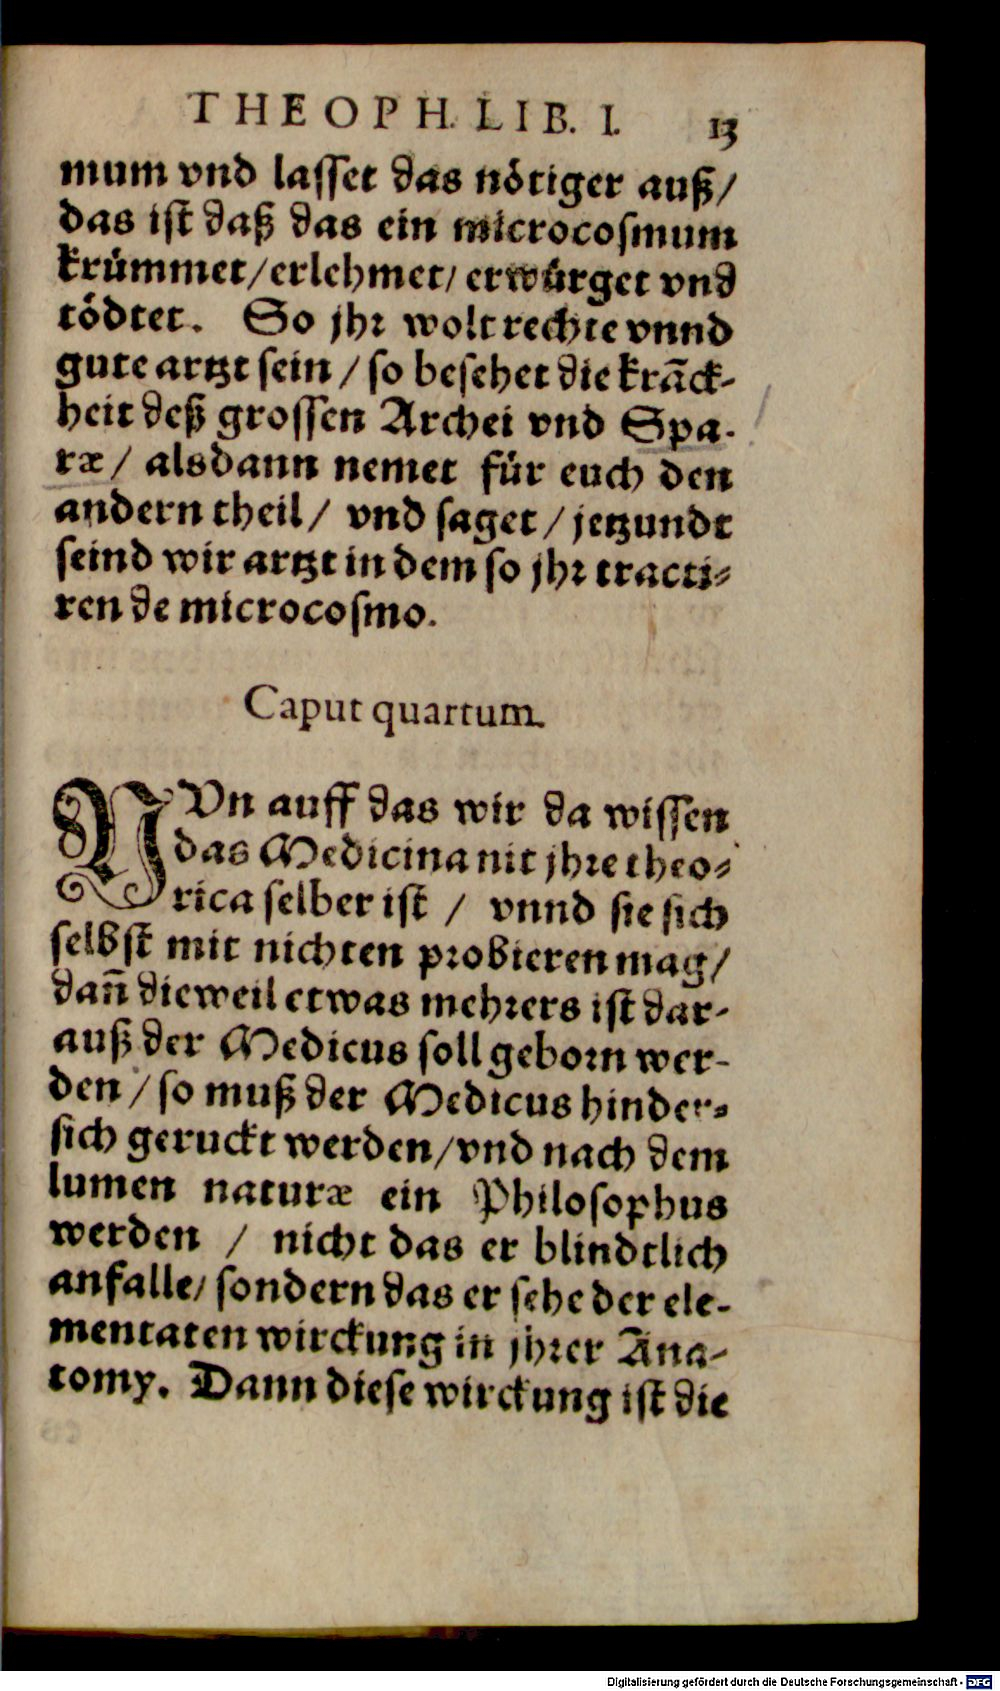 THEOPH. LIB. I. 13
mum vnd lasset das nötiger auß/
das ist daß das ein microcosmum
krümmet/erlehmet/ erwürget vnd
tödtet. So jhr wolt rechte vnnd
gute artzt sein / so besehet die krāck-
heit deß grossen Archei vnd Spa-
ræ/ alsdann nemet für euch den
andern theil/ vnd saget/ jetzundt
seind wir artzt in dem so jhr tracti-
ren de microcosmo.
Caput quartum.
NVn auff das wir da wissen
das Medicina nit jhre theo-
rica selber ist / vnnd sie sich
selbst mit nichten probieren mag/
dañ dieweil etwas mehrers ist dar-
auß der Medicus soll geborn wer-
den / so muß der Medicus hinder-
sich geruckt werden/vnd nach dem
lumen naturæ ein Philosophus
werden / nicht das er blindtlich
anfalle/ sondern das er sehe der ele-
mentaten wirckung in jhrer Ana-
tomy. Dann diese wirckung ist die
Digitalisierung gefördert durch die Deutsche Forschungsgemeinschaft - DFG